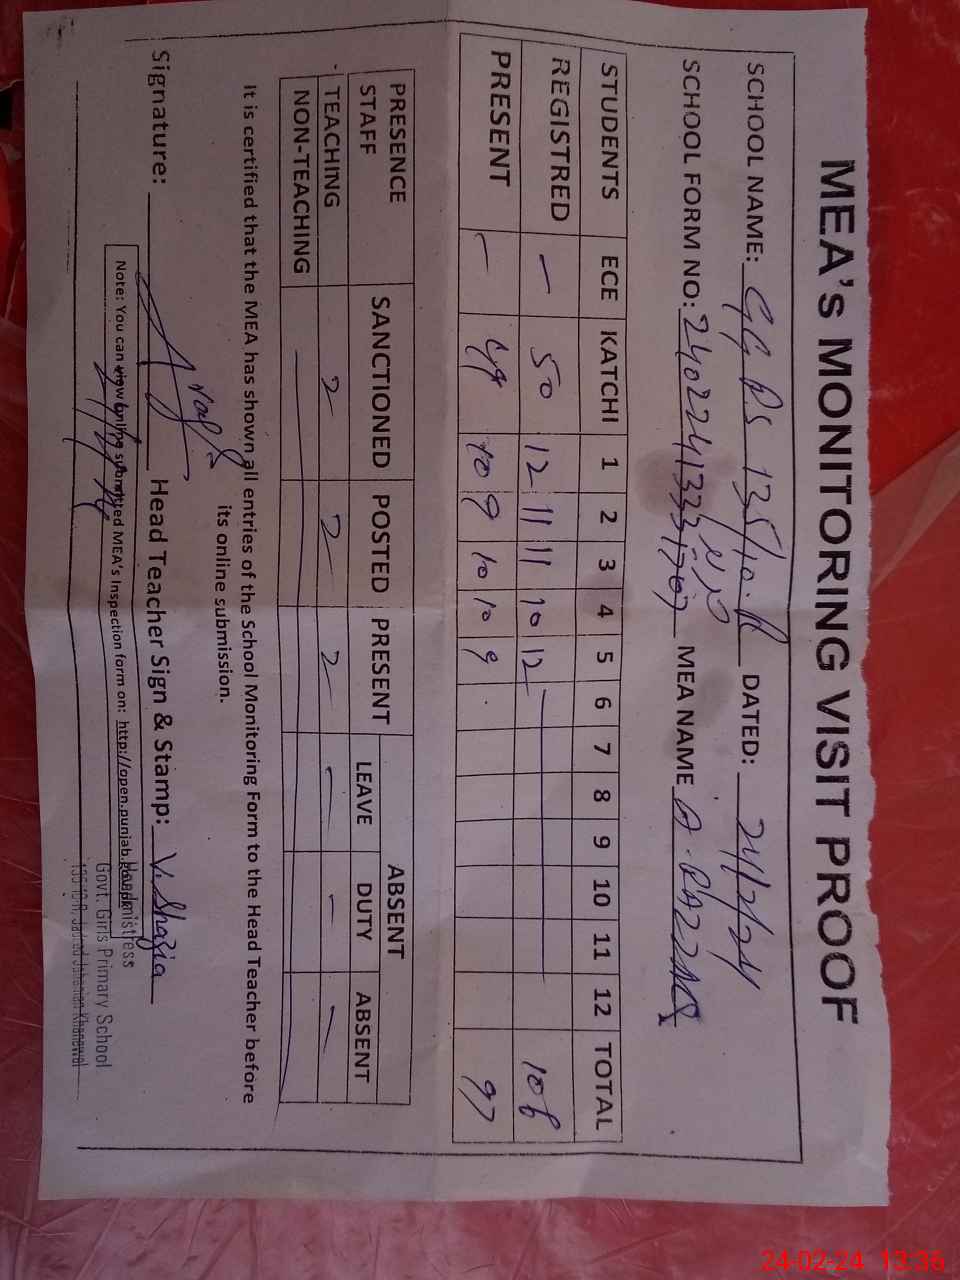 MEA's MONITORING VISIT PROOF
SCHOOL NAME: GGPS 135/10.R DATED: 24/2/24
SCHOOL FORM NO: MEA NAME A. RAZZAQ
STUDENTS ECE KATCHI 1 2 3 4 5 6 7 8 9 10 11 12 TOTAL
REGISTRED — 50 12 11 11 10 12 106
PRESENT — 49 10 9 10 10 9 97
PRESENCE STAFF SANCTIONED POSTED PRESENT ABSENT
LEAVE DUTY ABSENT
TEACHING 2 2 2 — — —
NON-TEACHING
It is certified that the MEA has shown all entries of the School Monitoring Form to the Head Teacher before
its online submission.
Signature: Head Teacher Sign & Stamp: Shazia
Note: You can view online submitted MEA's Inspection form on: http://open.punjab.gov.pk
24/2/24
Headmistress
Govt. Girls Primary School
135/10-R, Jahanian Khanewal
24-02-24 13:36